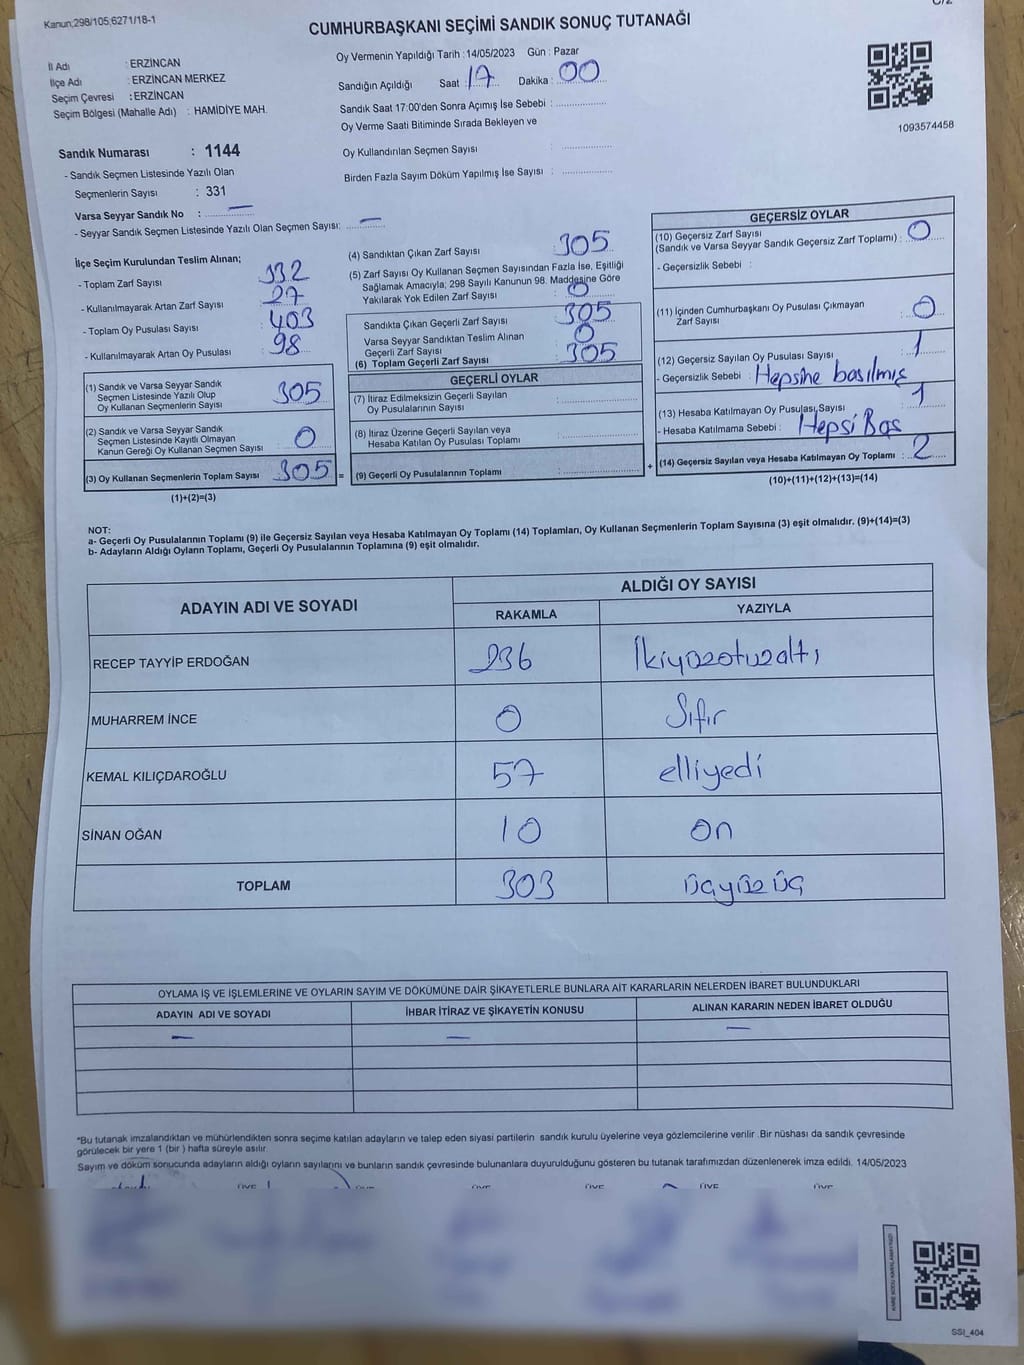 Kanun;298/105;6271/18-1
CUMHURBAŞKANI SEÇİMİ SANDIK SONUÇ TUTANAĞI
İl Adı : ERZİNCAN
İlçe Adı : ERZİNCAN MERKEZ
Seçim Çevresi : ERZİNCAN
Seçim Bölgesi (Mahalle Adı) : HAMİDİYE MAH.
Oy Vermenin Yapıldığı Tarih : 14/05/2023 Gün : Pazar
Sandığın Açıldığı Saat : 17 Dakika : 00
Sandık Saat 17:00'den Sonra Açımış İse Sebebi :
Oy Verme Saati Bitiminde Sırada Bekleyen ve
Oy Kullandırılan Seçmen Sayısı :
Birden Fazla Sayım Döküm Yapılmış İse Sayısı :
1093574458
Sandık Numarası : 1144
- Sandık Seçmen Listesinde Yazılı Olan
Seçmenlerin Sayısı : 331
Varsa Seyyar Sandık No : —
- Seyyar Sandık Seçmen Listesinde Yazılı Olan Seçmen Sayısı: —
İlçe Seçim Kurulundan Teslim Alınan;
- Toplam Zarf Sayısı 332
- Kullanılmayarak Artan Zarf Sayısı 27
- Toplam Oy Pusulası Sayısı 403
- Kullanılmayarak Artan Oy Pusulası 98
(1) Sandık ve Varsa Seyyar Sandık
Seçmen Listesinde Yazılı Olup
Oy Kullanan Seçmenlerin Sayısı 305
(2) Sandık ve Varsa Seyyar Sandık
Seçmen Listesinde Kayıtlı Olmayan
Kanun Gereği Oy Kullanan Seçmen Sayısı 0
(3) Oy Kullanan Seçmenlerin Toplam Sayısı 305 =
(1)+(2)=(3)
(4) Sandıktan Çıkan Zarf Sayısı 305
(5) Zarf Sayısı Oy Kullanan Seçmen Sayısından Fazla İse, Eşitliği
Sağlamak Amacıyla; 298 Sayılı Kanunun 98. Maddesine Göre
Yakılarak Yok Edilen Zarf Sayısı : 0
Sandıkta Çıkan Geçerli Zarf Sayısı : 305
Varsa Seyyar Sandıktan Teslim Alınan
Geçerli Zarf Sayısı : 0
(6) Toplam Geçerli Zarf Sayısı : 305
GEÇERLİ OYLAR
(7) İtiraz Edilmeksizin Geçerli Sayılan
Oy Pusulalarının Sayısı :
(8) İtiraz Üzerine Geçerli Sayılan veya
Hesaba Katılan Oy Pusulası Toplamı :
(9) Geçerli Oy Pusulalarının Toplamı : +
GEÇERSİZ OYLAR
(10) Geçersiz Zarf Sayısı
(Sandık ve Varsa Seyyar Sandık Geçersiz Zarf Toplamı) : 0
- Geçersizlik Sebebi :
(11) İçinden Cumhurbaşkanı Oy Pusulası Çıkmayan
Zarf Sayısı : 0
(12) Geçersiz Sayılan Oy Pusulası Sayısı : 1
- Geçersizlik Sebebi : Hepsine basılmış
(13) Hesaba Katılmayan Oy Pusulası Sayısı : 1
- Hesaba Katılmama Sebebi : Hepsi Boş
(14) Geçersiz Sayılan veya Hesaba Katılmayan Oy Toplamı : 2
(10)+(11)+(12)+(13)=(14)
NOT:
a- Geçerli Oy Pusulalarının Toplamı (9) ile Geçersiz Sayılan veya Hesaba Katılmayan Oy Toplamı (14) Toplamları, Oy Kullanan Seçmenlerin Toplam Sayısına (3) eşit olmalıdır. (9)+(14)=(3)
b- Adayların Aldığı Oyların Toplamı, Geçerli Oy Pusulalarının Toplamına (9) eşit olmalıdır.
ADAYIN ADI VE SOYADI ALDIĞI OY SAYISI
RAKAMLA YAZIYLA
RECEP TAYYİP ERDOĞAN 236 İkiyüzotuzaltı
MUHARREM İNCE 0 Sıfır
KEMAL KILIÇDAROĞLU 57 elliyedi
SİNAN OĞAN 10 on
TOPLAM 303 üçyüzüç
OYLAMA İŞ VE İŞLEMLERİNE VE OYLARIN SAYIM VE DÖKÜMÜNE DAİR ŞİKAYETLERLE BUNLARA AİT KARARLARIN NELERDEN İBARET BULUNDUKLARI
ADAYIN ADI VE SOYADI İHBAR İTİRAZ VE ŞİKAYETİN KONUSU ALINAN KARARIN NEDEN İBARET OLDUĞU
— — —
*Bu tutanak imzalandıktan ve mühürlendikten sonra seçime katılan adayların ve talep eden siyasi partilerin sandık kurulu üyelerine veya gözlemcilerine verilir .Bir nüshası da sandık çevresinde
görülecek bir yere 1 (bir ) hafta süreyle asılır.
Sayım ve döküm sonucunda adayların aldığı oyların sayılarını ve bunların sandık çevresinde bulunanlara duyurulduğunu gösteren bu tutanak tarafımızdan düzenlenerek imza edildi. 14/05/2023
ÜYE ÜYE ÜYE ÜYE ÜYE ÜYE
SSI_404